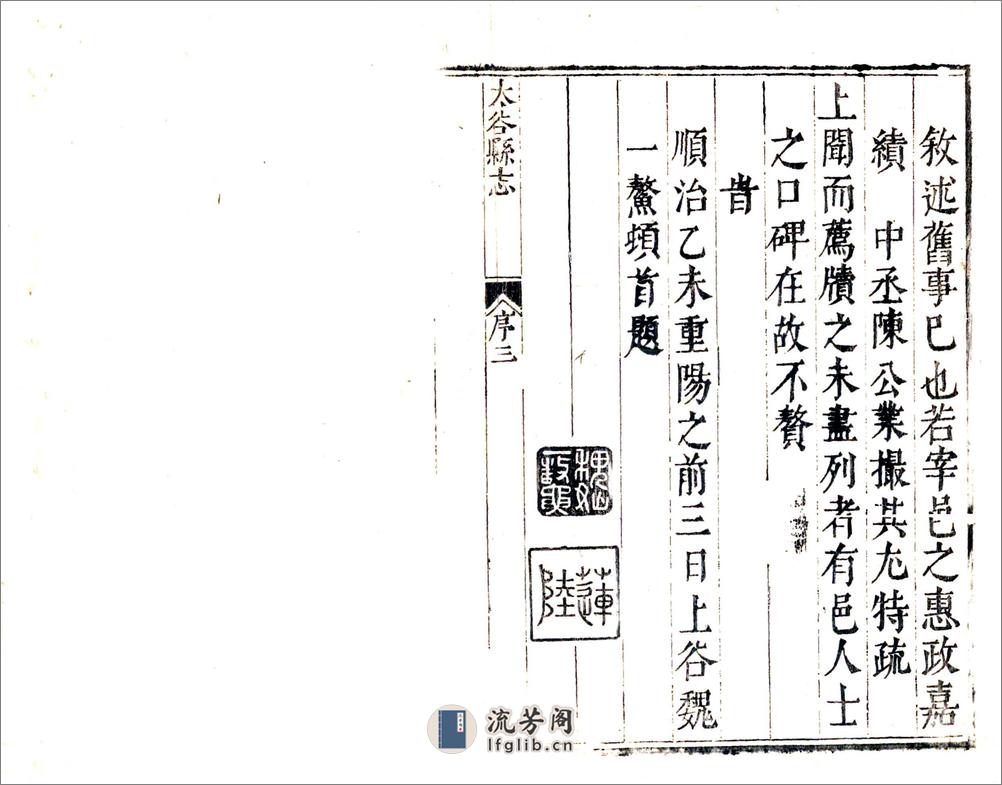 敘述舊事已也若宰邑之惠政嘉
績　中丞陳公業撮其尤特疏
上聞而薦牘之未盡列者有邑人士
之口碑在故不贅
旹
順治乙未重陽之前三日上谷魏
一鰲頓首題
蓮陸
太谷縣志
序三
流芳阁
lfglib.cn